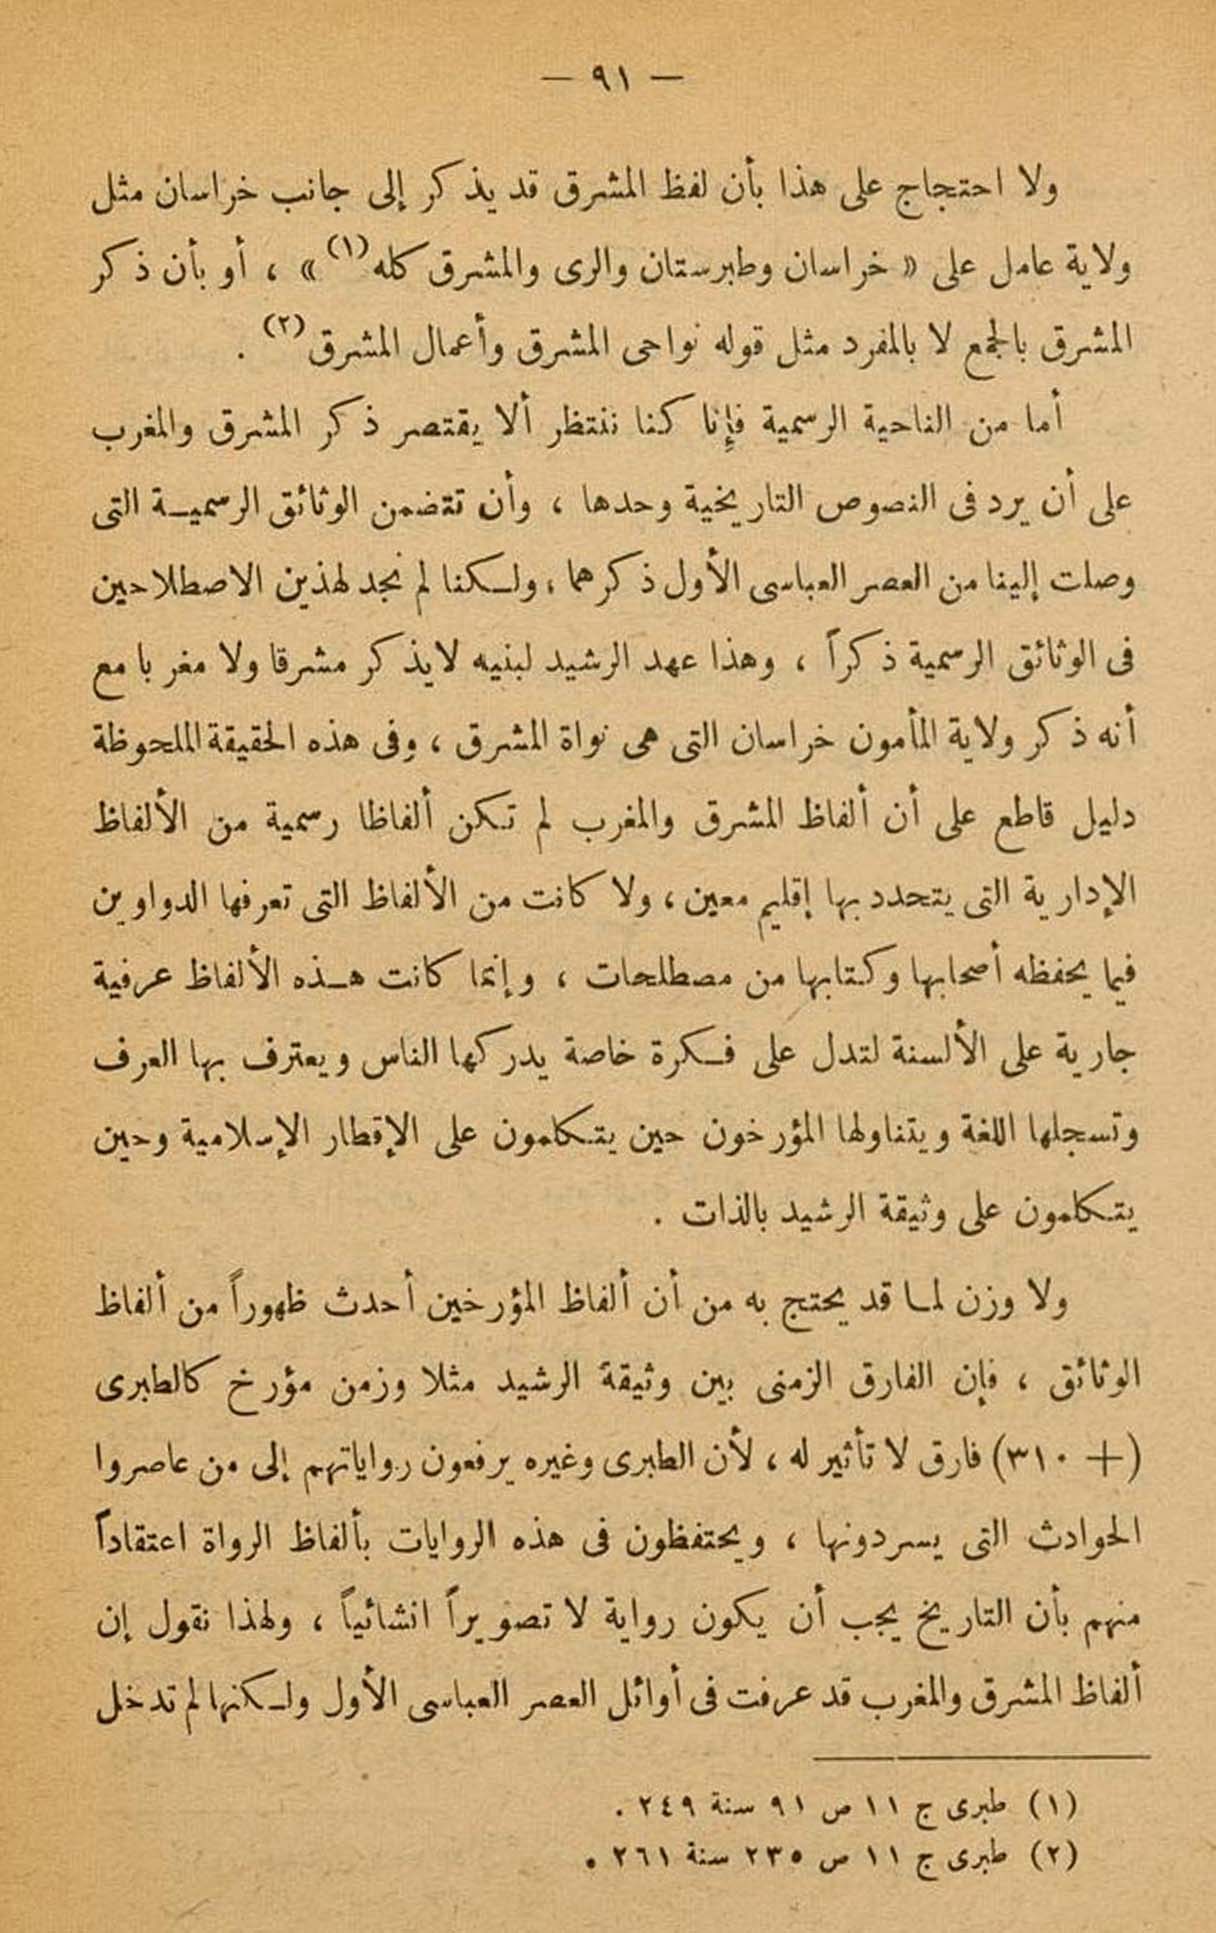 — ٩١ —
ولا احتجاج على هذا بأن لفظ المشرق قد يذكر إلى جانب خراسان مثل
ولاية عامل على « خراسان وطبرستان والرى والمشرق كله (١) » ، أو بأن ذكر
المشرق بالجمع لا بالمفرد مثل قوله نواحى المشرق وأعمال المشرق (٢) .
أما من الناحية الرسمية فإنا كنا ننتظر ألا يقتصر ذكر المشرق والمغرب
على أن يرد فى النصوص التاريخية وحدها ، وأن تتضمن الوثائق الرسميـة التى
وصلت إلينا من العصر العباسى الأول ذكرهما ، ولـكنا لم نجد لهذين الاصطلاحين
فى الوثائق الرسمية ذكراً ، وهذا عهد الرشيد لبنيه لايذكر مشرقا ولا مغربا مع
أنه ذكر ولاية المأمون خراسان التى هى نواة المشرق ، وفى هذه الحقيقة الملحوظة
دليل قاطع على أن ألفاظ المشرق والمغرب لم تـكن ألفاظا رسمية من الألفاظ
الإدارية التى يتحدد بها إقليم معين ، ولا كانت من الألفاظ التى تعرفها الدواوين
فيما يحفظه أصحابها وكـتابها من مصطلحات ، وإنما كانت هـذه الألفاظ عرفية
جارية على الألسنة لتدل على فـكرة خاصة يدركها الناس ويعترف بها العرف
وتسجلها اللغة ويتناولها المؤرخون حين يتـكلمون على الإقطار الإسلامية وحين
يتـكلمون على وثيقة الرشيد بالذات .
ولا وزن لمـا قد يحتج به من أن ألفاظ المؤرخين أحدث ظهوراً من ألفاظ
الوثائق ، فإن الفارق الزمنى بين وثيقة الرشيد مثلا وزمن مؤرخ كالطبرى
(+ ٣١٠) فارق لا تأثير له ، لأن الطبرى وغيره يرفعون رواياتهم إلى من عاصروا
الحوادث التى يسردونها ، ويحتفظون فى هذه الروايات بألفاظ الرواة اعتقاداً
منهم بأن التاريخ يجب أن يكون رواية لا تصويراً انشائياً ، ولهذا نقول إن
ألفاظ المشرق والمغرب قد عرفت فى أوائل العصر العباسى الأول ولـكنها لم تدخل
(١) طبرى ج ١١ ص ٩١ سنة ٢٤٩ .
(٢) طبرى ج ١١ ص ٢٣٥ سنة ٢٦١ .